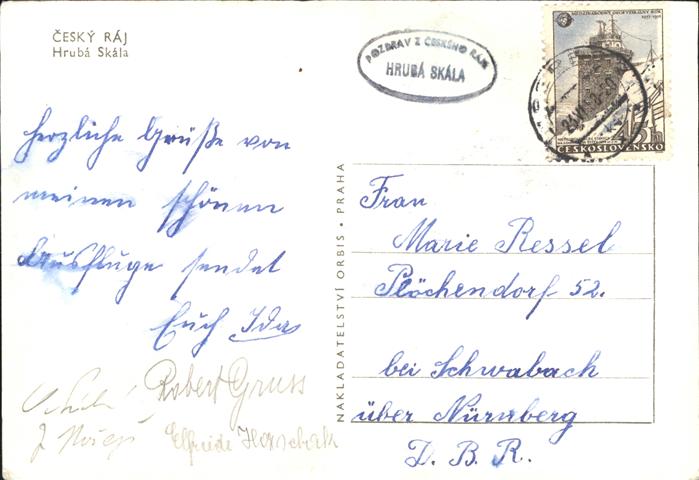 ČESKÝ RÁJ
Hrubá Skála
POZDRAV Z ČESKÉHO RÁJE
HRUBÁ SKÁLA
MEZINÁRODNÍ GEOFYSIKÁLNÍ ROK
1957-1958
15h
ČESKOSLOVENSKO
herzliche Grüße von
meinen schönen
Ausfluge sendet
Euch Ida
Robert Gruss
Elfriede
NAKLADATELSTVÍ ORBIS • PRAHA
Frau
Marie Ressel
Plöchendorf 52.
bei Schwabach
über Nürnberg
D. B. R.